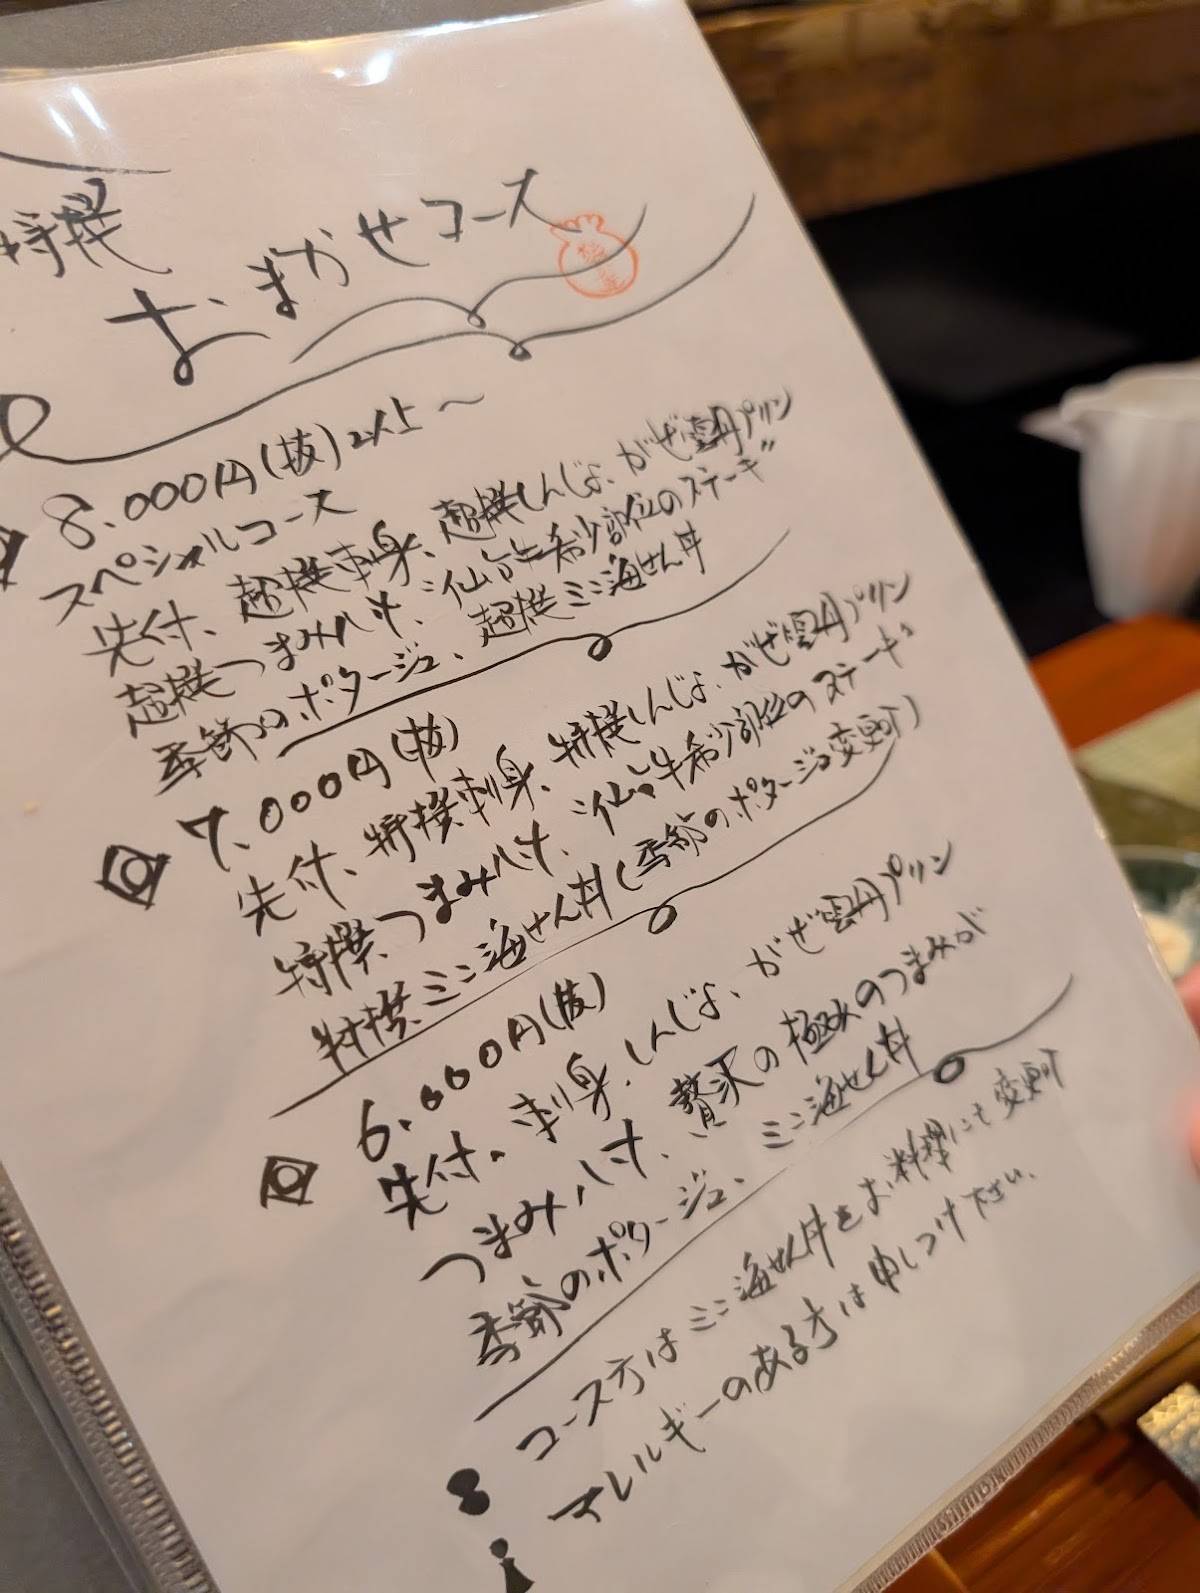 特撰
おまかせコース
8.000円(抜)以上〜
スペシャルコース
先付、超撰刺身、超撰しんじょ、がぜ雲丹プリン
超撰つまみ八寸、仙台牛希少部位のステーキ
季節のポタージュ、超撰ミニ海せん丼
7.000円(抜)
先付、特撰刺身、特撰しんじょ、がぜ雲丹プリン
特撰つまみ八寸、仙台牛希少部位のステーキ
特撰ミニ海せん丼(季節のポタージュ変更可)
6.000円(抜)
先付、刺身、しんじょ、がぜ雲丹プリン
つまみ八寸、贅沢の極みのつまみが
季節のポタージュ、ミニ海せん丼
コース方はミニ海せん丼をお料理にも変更可
アレルギーのある方は申しつけ下さい。